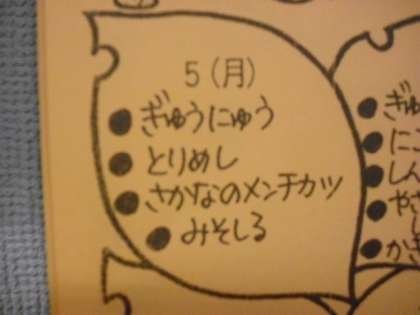 5(月)
●ぎゅうにゅう
●とりめし
●さかなのメンチカツ
●みそしる
●ぎ
●に
●しん
●やさ
し
●かき